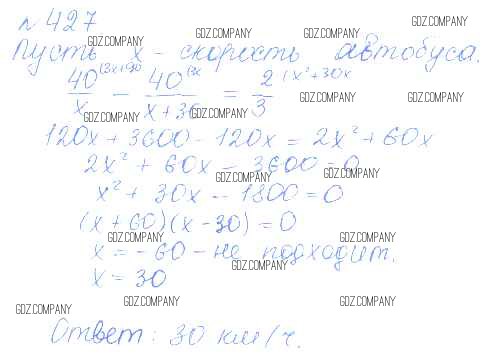 № 427
GDZ.COMPANY
Пусть x - скорость автобуса.
GDZ.COMPANY GDZ.COMPANY GDZ.COMPANY
40/x - 40/(x+30) = 2/3 (x²+30x
GDZ.COMPANY GDZ.COMPANY
GDZ.COMPANY GDZ.COMPANY
120x + 3600 - 120x = 2x² + 60x
2x² + 60x - 3600 = 0
GDZ.COMPANY GDZ.COMPANY
x² + 30x - 1800 = 0
(x + 60)(x - 30) = 0
GDZ.COMPANY GDZ.COMPANY
x = -60 - не подходит.
GDZ.COMPANY
x = 30
GDZ.COMPANY GDZ.COMPANY GDZ.COMPANY
Ответ: 30 км/ч.